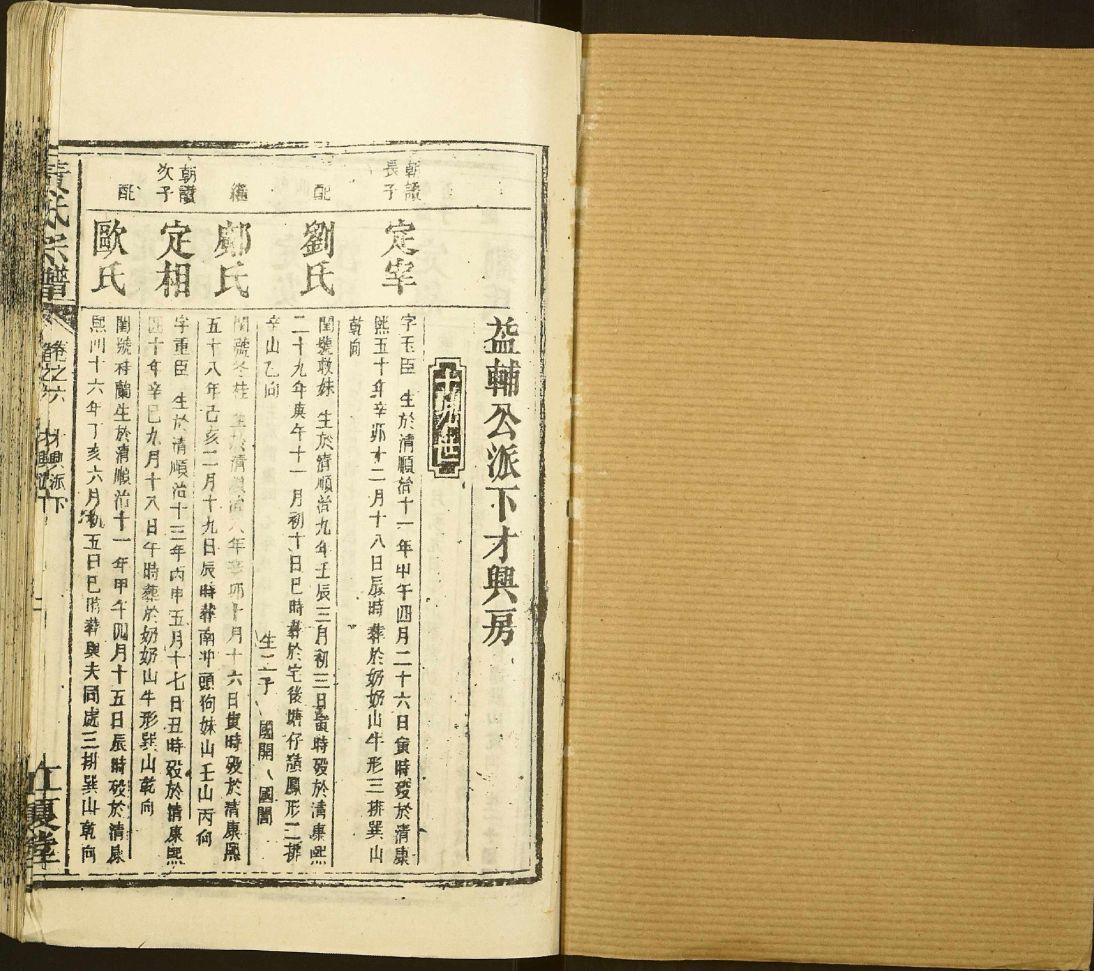 益輔公派下才興房
十九世
朝讚長子
定宰
字玉臣 生於清順治十一年甲午四月二十六日寅時歿於清康
熙五十年辛卯十二月十八日辰時葬於奶奶山牛形三排巽山
乾向
配
劉氏
閨號敬妹 生於清順治九年壬辰三月初三日寅時歿於清康熙
二十九年庚午十一月初十日巳時葬於宅後塘仔嶺鳳形二排
辛山乙向 生二子 國開 國誾
繼
鄺氏
閨號冬桂 生於清順治八年辛卯十月十六日寅時歿於清康熙
五十八年己亥二月十九日辰時葬南冲頭狗妹山壬山丙向
朝讚次子
定相
字重臣 生於清順治十三年丙申五月十七日丑時歿於清康熙
四十年辛巳九月十八日午時葬於奶奶山牛形巽山乾向
配
歐氏
閨號桂蘭生於清順治十一年甲午四月十五日辰時歿於清康
熙四十六年丁亥六月初五日巳時葬與夫同處三排巽山乾向
氏宗譜
卷之六
才興派下